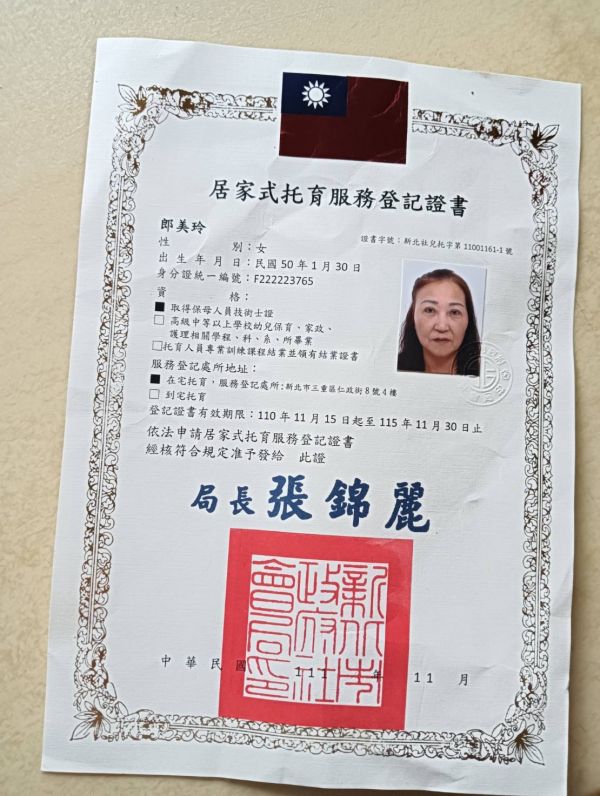 居家式托育服務登記證書
郎美玲
證書字號：新北社兒托字第11001161-1號
性別：女
出生年月日：民國50年1月30日
身分證統一編號：F222223765
資格：
■ 取得保母人員技術士證
□ 高級中等以上學校幼兒保育、家政、
護理相關學程、科、系、所畢業
□托育人員專業訓練課程結業並領有結業證書
服務登記處所地址：
■ 在宅托育，服務登記處所：新北市三重區仁政街8號4樓
□ 到宅托育
登記證書有效期限：110年11月15日起至115年11月30日止
依法申請居家式托育服務登記證書
經核符合規定准予發給 此證
局長 張錦麗
新北市政府社會局印
中華民國 111 年 11 月